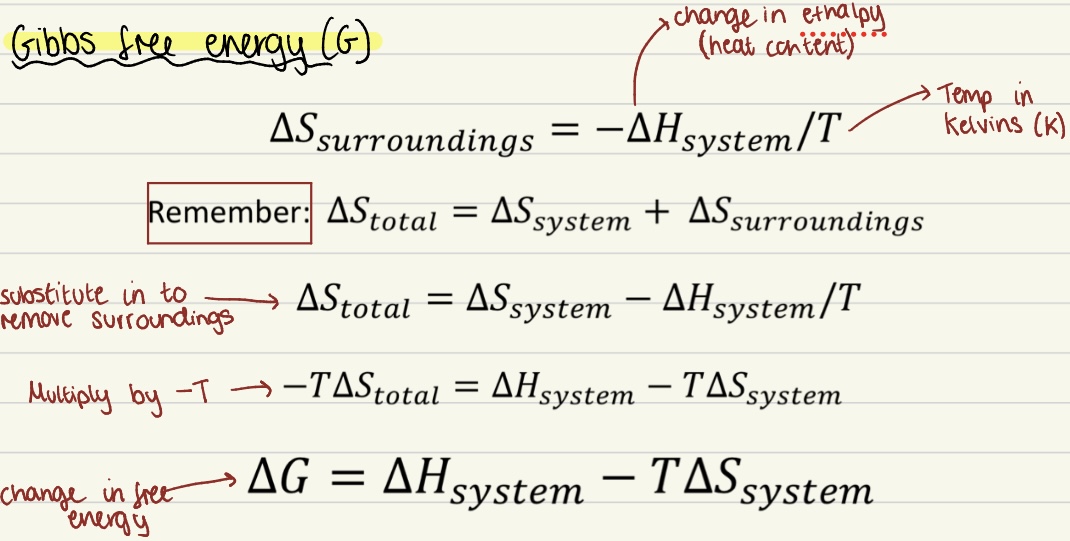 Gibbs free energy (G)
change in ethalpy
(heat content)
ΔS_surroundings = −ΔH_system/T
Temp in
Kelvins (K)
Remember: ΔS_total = ΔS_system + ΔS_surroundings
substitute in to
remove surroundings
ΔS_total = ΔS_system − ΔH_system/T
Multiply by -T
−TΔS_total = ΔH_system − TΔS_system
change in free
energy
ΔG = ΔH_system − TΔS_system